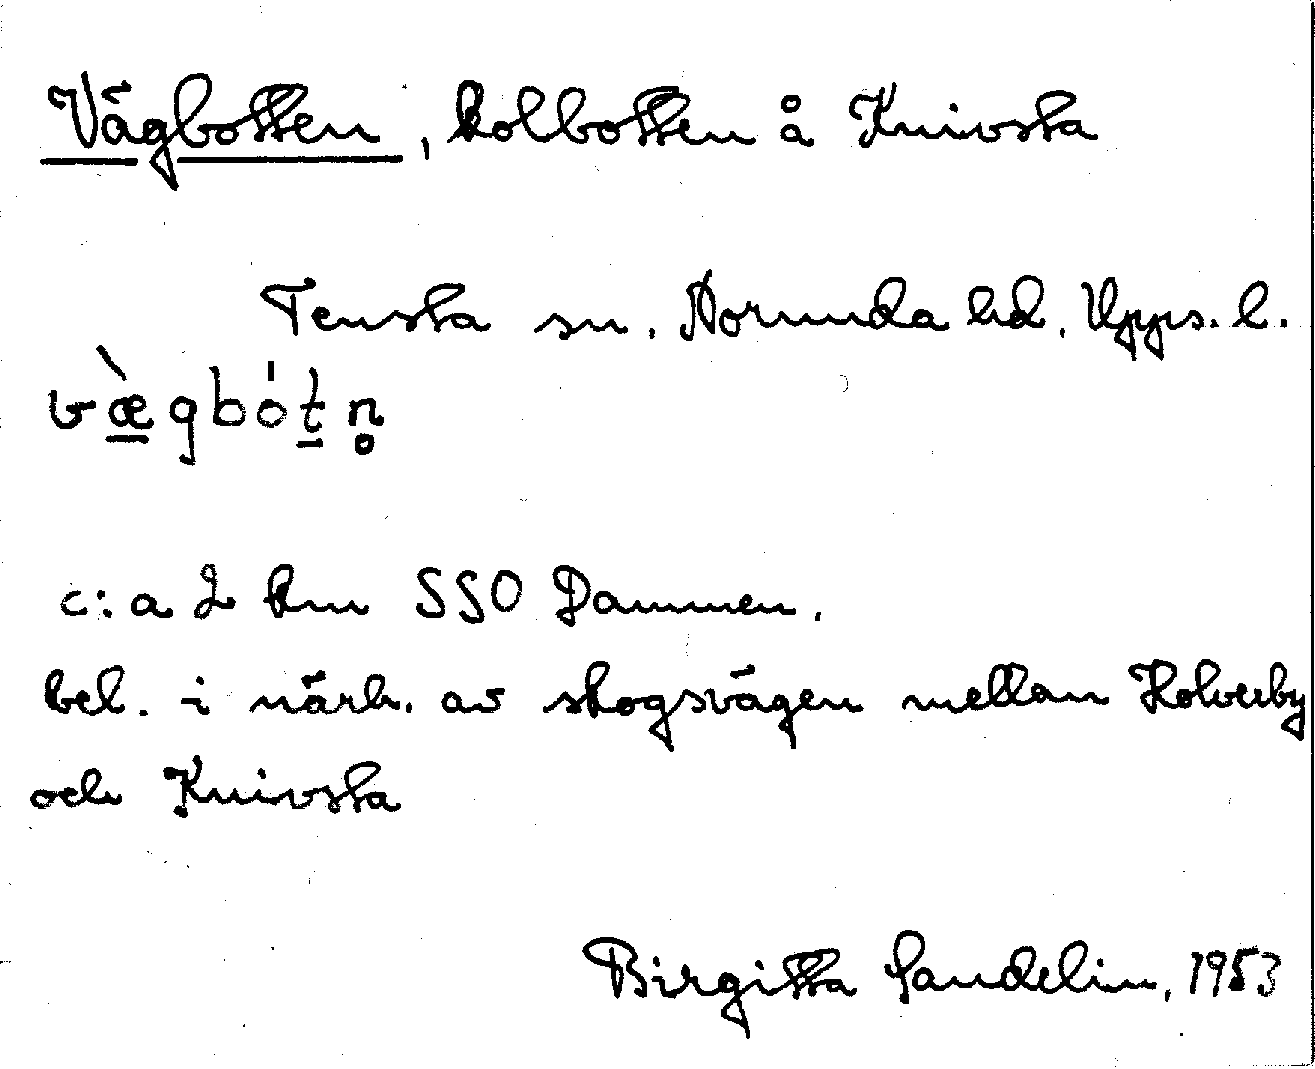 Vägbotten, kolbotten å Knivsta
Tensta sn. Norunda hd. Upps. l.
væ̀gbót̠n̥
c:a 2 km SSO Dammen.
bel. i närh. av skogsvägen mellan Kolverby
och Knivsta
Birgitta Sandelin, 1953